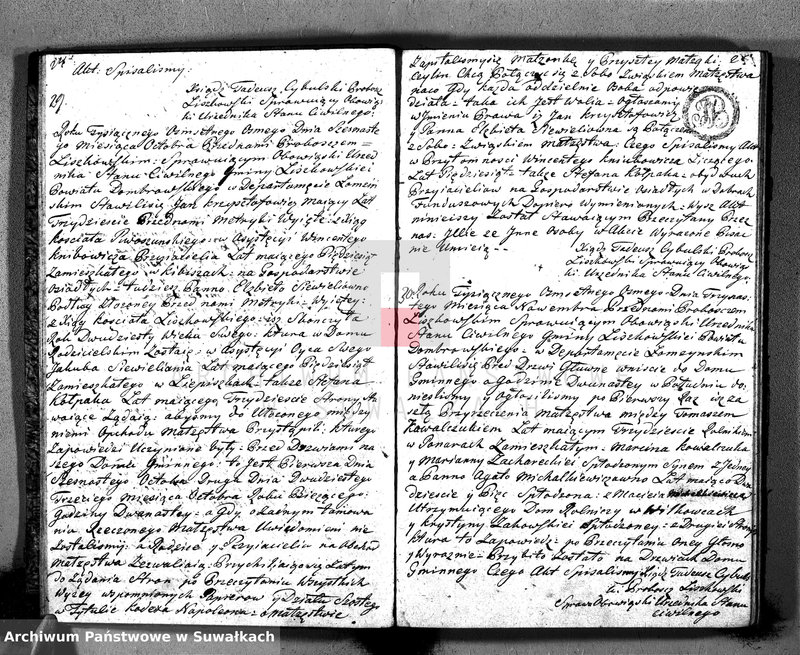 Akt Spisalismy.
Ksiądz Tadeusz Cybulski Proboszcz
Liszkowski Sprawuiący Obowiąz
ki Urzednika Stanu Cywilnego
29.
Roku Tysiącznego Osmsetnego Osmego Dnia Szesnaste
go Miesiąca Octobra Przednami Proboszczem
Liszkowskim Sprawuiącym Obowiązki Urzed
nika Stanu Cywilnego Gminy Liszkowskiey
Powiatu Dombrowskiego w Departamęcie Łomzin
skim Stawilisię Jan Krzysztofowicz Maiący Lat
Trzydziescie Przednami Metryki Wyięte z Xiąg
Koscioła w Assystęcyi Wincentego
Knibowicza Przyiaciela Lat maiącego Pięcdziesiąt
Zamieszkałego w Kibiszach na Gospodarstwie
Osiadłych tudziesz Panna Elzbieta Siewielowna
Podług złożoney Przed nami Metryki Wyiętey
z Xiąg Koscioła Liszkowskiego iż Skonczyła
Rok Dwudziesty Wieku Swego Ktura w Domu
Rodzicielskim Zostaie w Assystęcyi Oyca Swego
Jakuba Siewieliania Lat maiącego Pięcdziesiąt
Zamieszkałego w Liepiszkach także Stefana
Kołpaka Lat maiącego Trzydziescie Strony Sta
waiące Ządaią abysmy do Ułoconego między
niemi Obchodu Małzęstwa Przystąpili ktorego
Zapowiedzi Uczynione były Przed Drzwiami na
szego Domu Gminnego to Jest Pierwsza Dnia
Szesnastego Octobra Druga Dnia Dwudziestego
Trzeciego Miesiąca Octobra Roku Bieżącego
godziny Dwunastey a Gdy o żadnym tamowa
niu Rzeczonego Małzęstwa Uwiedomieni nie
Zostalismy a Rodzice y Przyiaciele na Obchod
Małzęstwa Zezwalaią Przychylaiącsię Zatym
do Ządania Stron po Przeczytaniu Wszystkich
Wyżey wspomnionych Papierow y Działu Szostego
w Tytule Kodexa Napoleona o Małzęstwie
Zapytalismysię Małzonka y Przyszłey Małzonki
czyliby Chcą Połączyc się z Sobą Związkiem Małzęstwa
naco Gdy Kazda oddzielnie Osoba odpowie
działa taka ich Jest Wola Ogłaszamy
w Imieniu Prawa iz Jan Krzysztofowicz
y Panna Elżbieta Siewieliowna są Połączeni
z Sobą Związkiem Małzęstwa Czego Spisalismy Akt
w Przytomnosci Wincentego Knickowicza Liczącego
Lat Pięcdziesiąt także Stefana Kołpaka obydwuch
Przyiacieliow na Gospodarstwie Osiadłych w Dobrach
Funduszowych Wymienionych Wysz Akt
ninieiszy Zostal Stawaiącym Przeczytany Przez
nas Ilie ze Inne Osoby w Akcie Wyrażone Pisac
nie Umieią
Ksiądz Tadeusz Cybulski Proboszcz
Liszkowski Sprawuiący Obowiąz
ki Urzednika Stanu Cywilnego
30. Roku Tysiącznego Osmsetnego Osmego Dnia Trzynas
tego Miesiąca Nowembra Przednami Proboszczem
Liszkowskim Sprawuiącym Obowiązki Urzednika
Stanu Cywilnego Gminy Liszkowskiey Powiatu
Dombrowskiego w Departamęcie Łomzynskim
Stawilisię Pred Drzwi Głuwne wniście do Domu
Gminnego a Godzinie Dwunastey w Południu do
nieslismy y Ogłosilismy po Pierwszy Raz iż za
szłą Przyrzeczenia Małzęstwa między Tomaszem
Kowalczukiem Lat maiącym Trzydziescie Rolnikiem
w Ponarach Zamieszkałym Marcina Kowalczuka
y Maryanny Zachareckiey Spłodzonym Synem z Jedney
a Panno Agato Michalkiewiczowno Lat maiąco Dwa
dziescie y Pięc Spłodzona z Macieia Michalkiewicza
Utrzymuiącego Dom Rolniczy w Wilkowcach
y Krystyny Zakowskiey Spłodzoney z Drugiey Strony
Ktura to Zapowiedz po Przeczytaniu Oney Głosno
y Wyraźnie Przybita Zostala na Drzwiach Domu
Gminnego Czego Akt Spisalismy Ksiądz Tadeusz Cybuls
ki Proboszcz Liszkowski
Spraw Obowiązki Urzednika Stanu
Ciwilnego
Archiwum Państwowe w Suwałkach